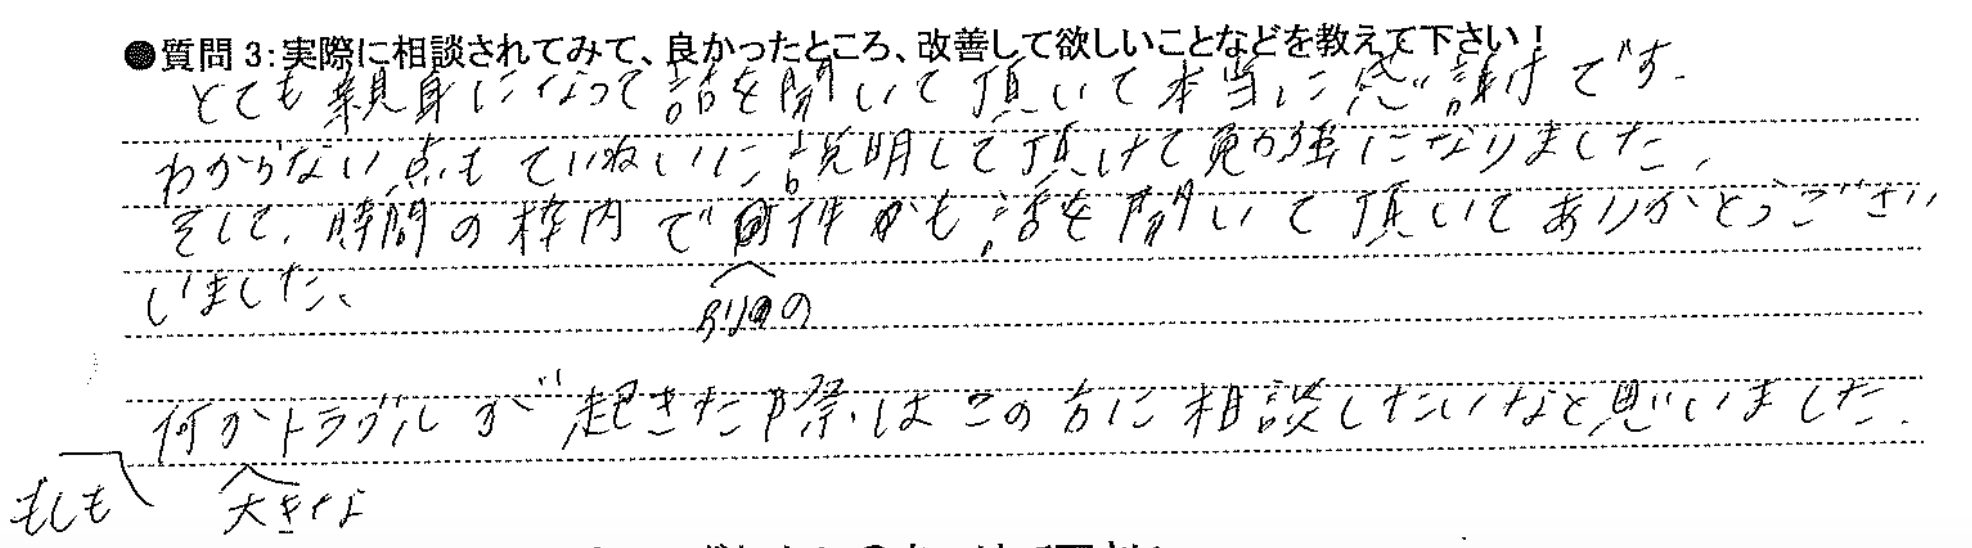 ●質問 3:実際に相談されてみて、良かったところ、改善して欲しいことなどを教えて下さい！
とても親身になって話を聞いて頂いて本当に感謝です.
わからない点もていねいに説明して頂けて勉強になりました.
そして、時間の枠内で 件も話を聞いて頂いてありがとうござい
いました、
別の
何かトラブルが起きた際はこの方に相談したいなと思いました.
もしも
大きな